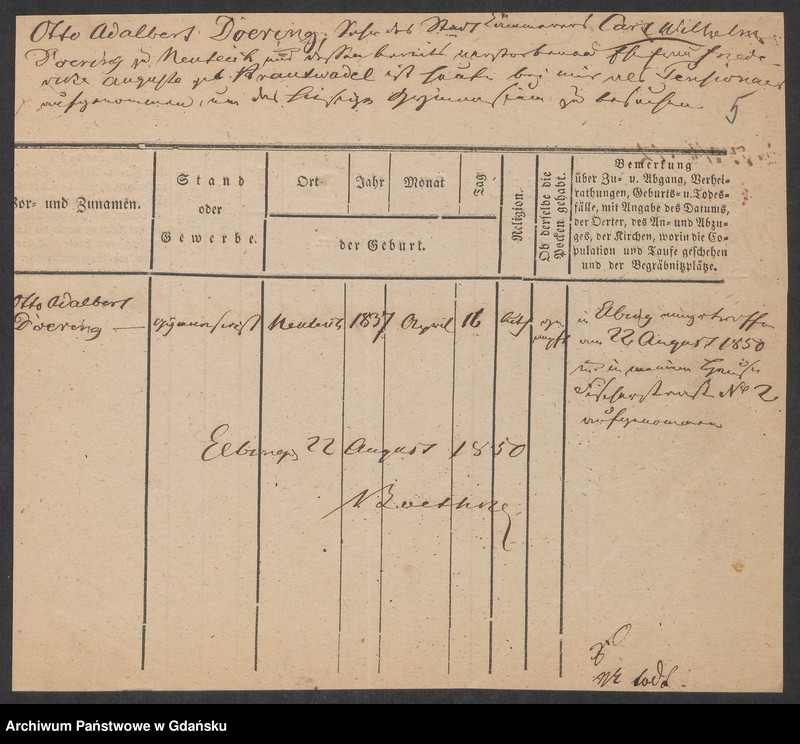 Otto Adalbert Doering, Sohn des Stadt Kämmerers Carl Wilhelm
Doering zu Neuteich und dessen bereits verstorbenen Ehefrau Friede-
ricke Auguste geb. ist heute bei mir als Pensionair
aufgenommen, um das hiesige Gymnasium zu besuchen.
5
Vor- und Zunamen.
Stand
oder
Gewerbe.
Ort
Jahr
Monat
Tag
der Geburt.
Religion.
Ob derselbe die
Pocken gehabt.
Bemerkung
über Zu- u. Abgang, Verhei-
rathungen, Geburts- u. Todes-
fälle, mit Angabe des Datums,
der Oerter, des An- und Abzu-
ges, der Kirchen, worin die Co-
pulation und Taufe geschehen
und der Begräbnitzplätze.
Otto Adalbert
Doering — Gymnasiast Neuteich 1837 April 16 luth. ge-
impft
in Elbing eingetroffen
am 22 August 1850
und in meinem Hause
Fischerstraße No 2
aufgenommen
Elbing 22 August 1850
todt.
Archiwum Państwowe w Gdańsku